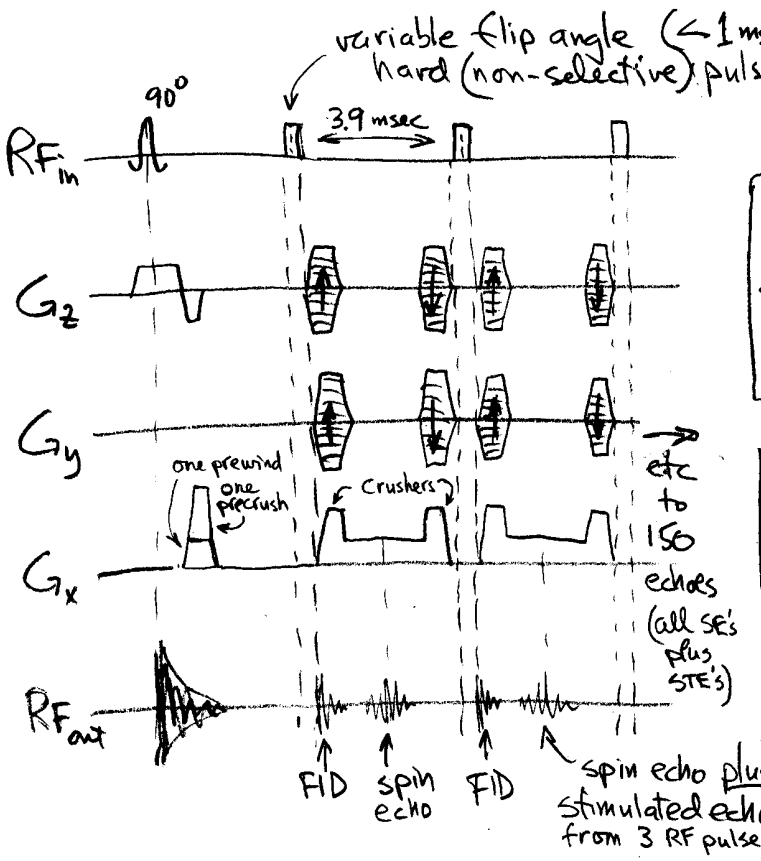 variable flip angle (<1 ms
hard (non-selective) pulse
90°
3.9 msec
RFin
Gz
Gy
one prewind
one
precrush
crushers
Gx
etc
to
150
echoes
(all SE's
plus
STE's)
RFout
FID
spin
echo
FID
spin echo plus
stimulated echo
from 3 RF pulse